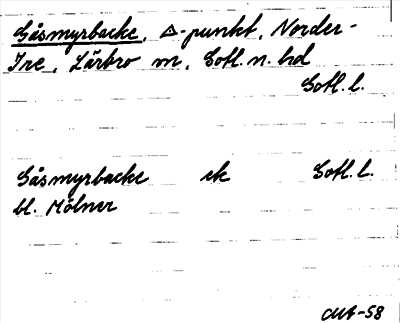 Gåsmyrbacke, △-punkt, Norder-
Ire, Lärbro sn, Gotl. n. hd
Gotl. l.
Gåsmyrbacke ek Gotl. l.
bl. Mölner
CMA-58